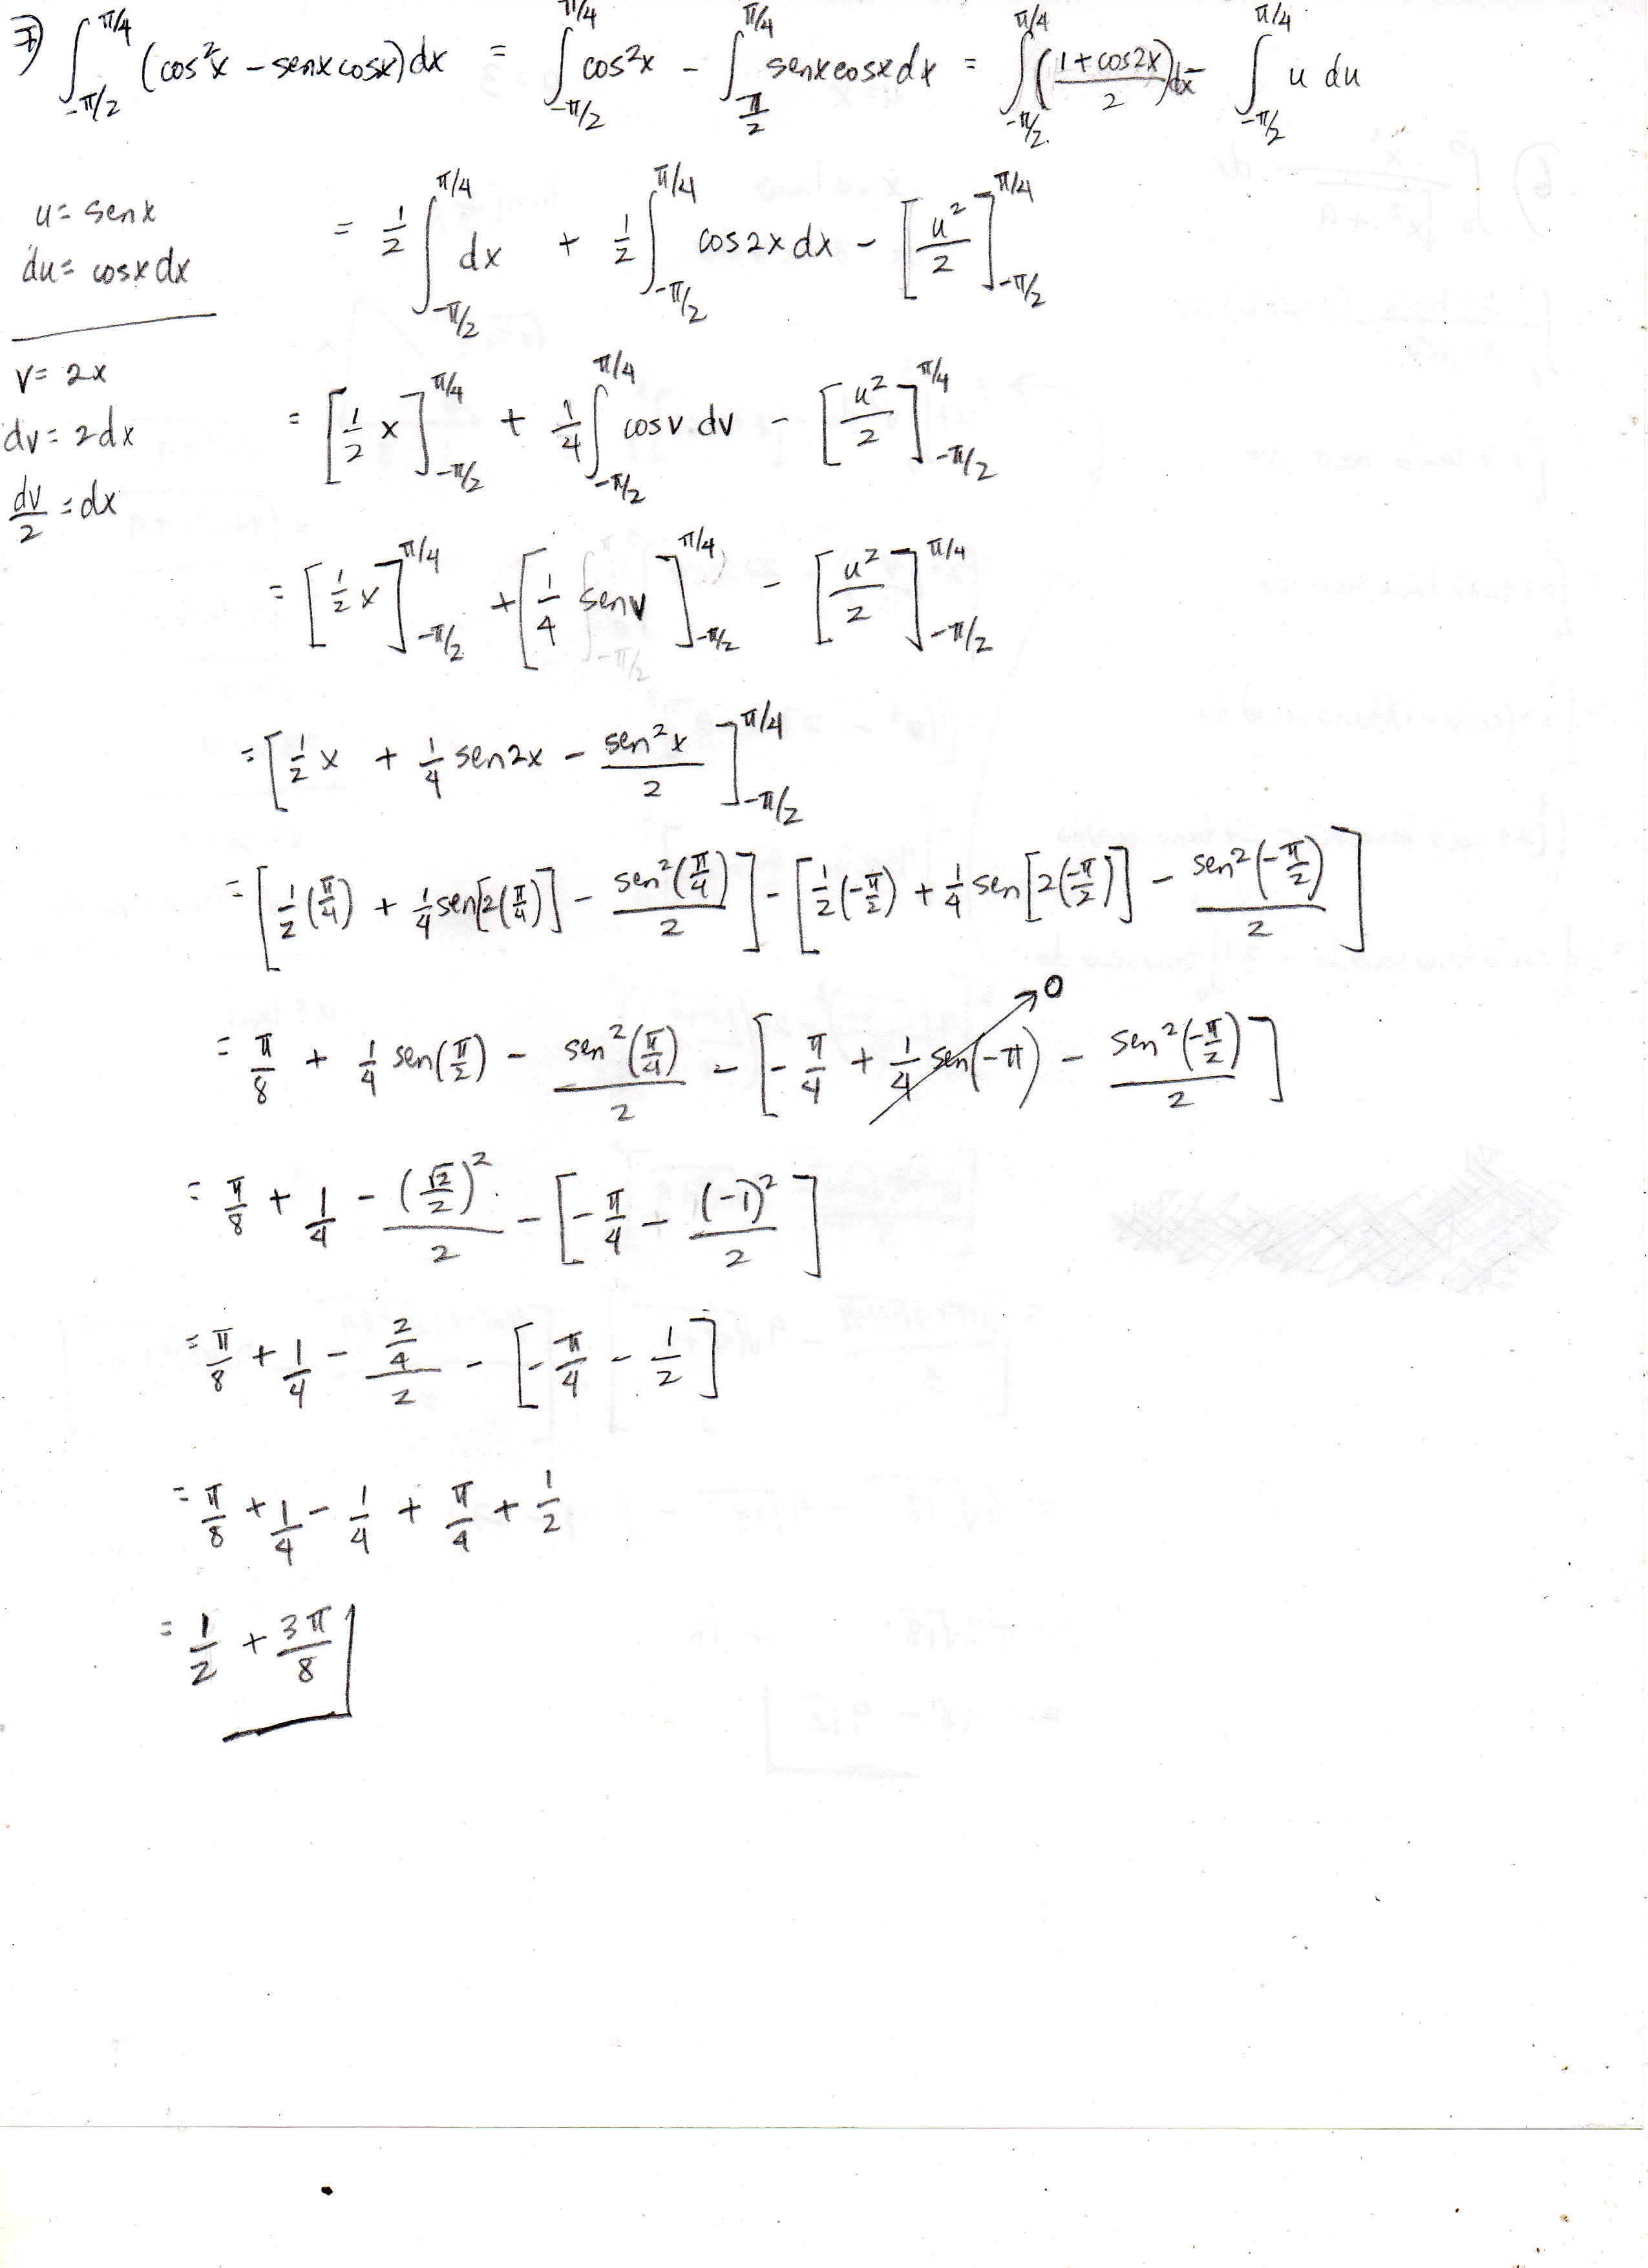 7) ∫_{-π/2}^{π/4} (cos²x - senx cosx) dx = ∫_{-π/2}^{π/4} cos²x - ∫_{π/2}^{π/4} senx cosx dx = ∫_{-π/2}^{π/4} ((1 + cos2x)/2) dx - ∫_{-π/2}^{π/4} u du
u = senx
du = cosx dx
= 1/2 ∫_{-π/2}^{π/4} dx + 1/2 ∫_{-π/2}^{π/4} cos2x dx - [u²/2]_{-π/2}^{π/4}
v = 2x
dv = 2dx
dv/2 = dx
= [1/2 x]_{-π/2}^{π/4} + 1/4 ∫_{-π/2}^{π/4} cosv dv - [u²/2]_{-π/2}^{π/4}
= [1/2 x]_{-π/2}^{π/4} + [1/4 senv]_{-π/2}^{π/4} - [u²/2]_{-π/2}^{π/4}
= [1/2 x + 1/4 sen2x - sen²x/2]_{-π/2}^{π/4}
= [1/2 (π/4) + 1/4 sen[2(π/4)] - sen²(π/4)/2] - [1/2 (-π/2) + 1/4 sen[2(-π/2)] - sen²(-π/2)/2]
= π/8 + 1/4 sen(π/2) - sen²(π/4)/2 - [-π/4 + 1/4 sen(-π) → 0 - sen²(-π/2)/2]
= π/8 + 1/4 - (√2/2)²/2 - [-π/4 - (-1)²/2]
= π/8 + 1/4 - (2/4)/2 - [-π/4 - 1/2]
= π/8 + 1/4 - 1/4 + π/4 + 1/2
= 1/2 + 3π/8